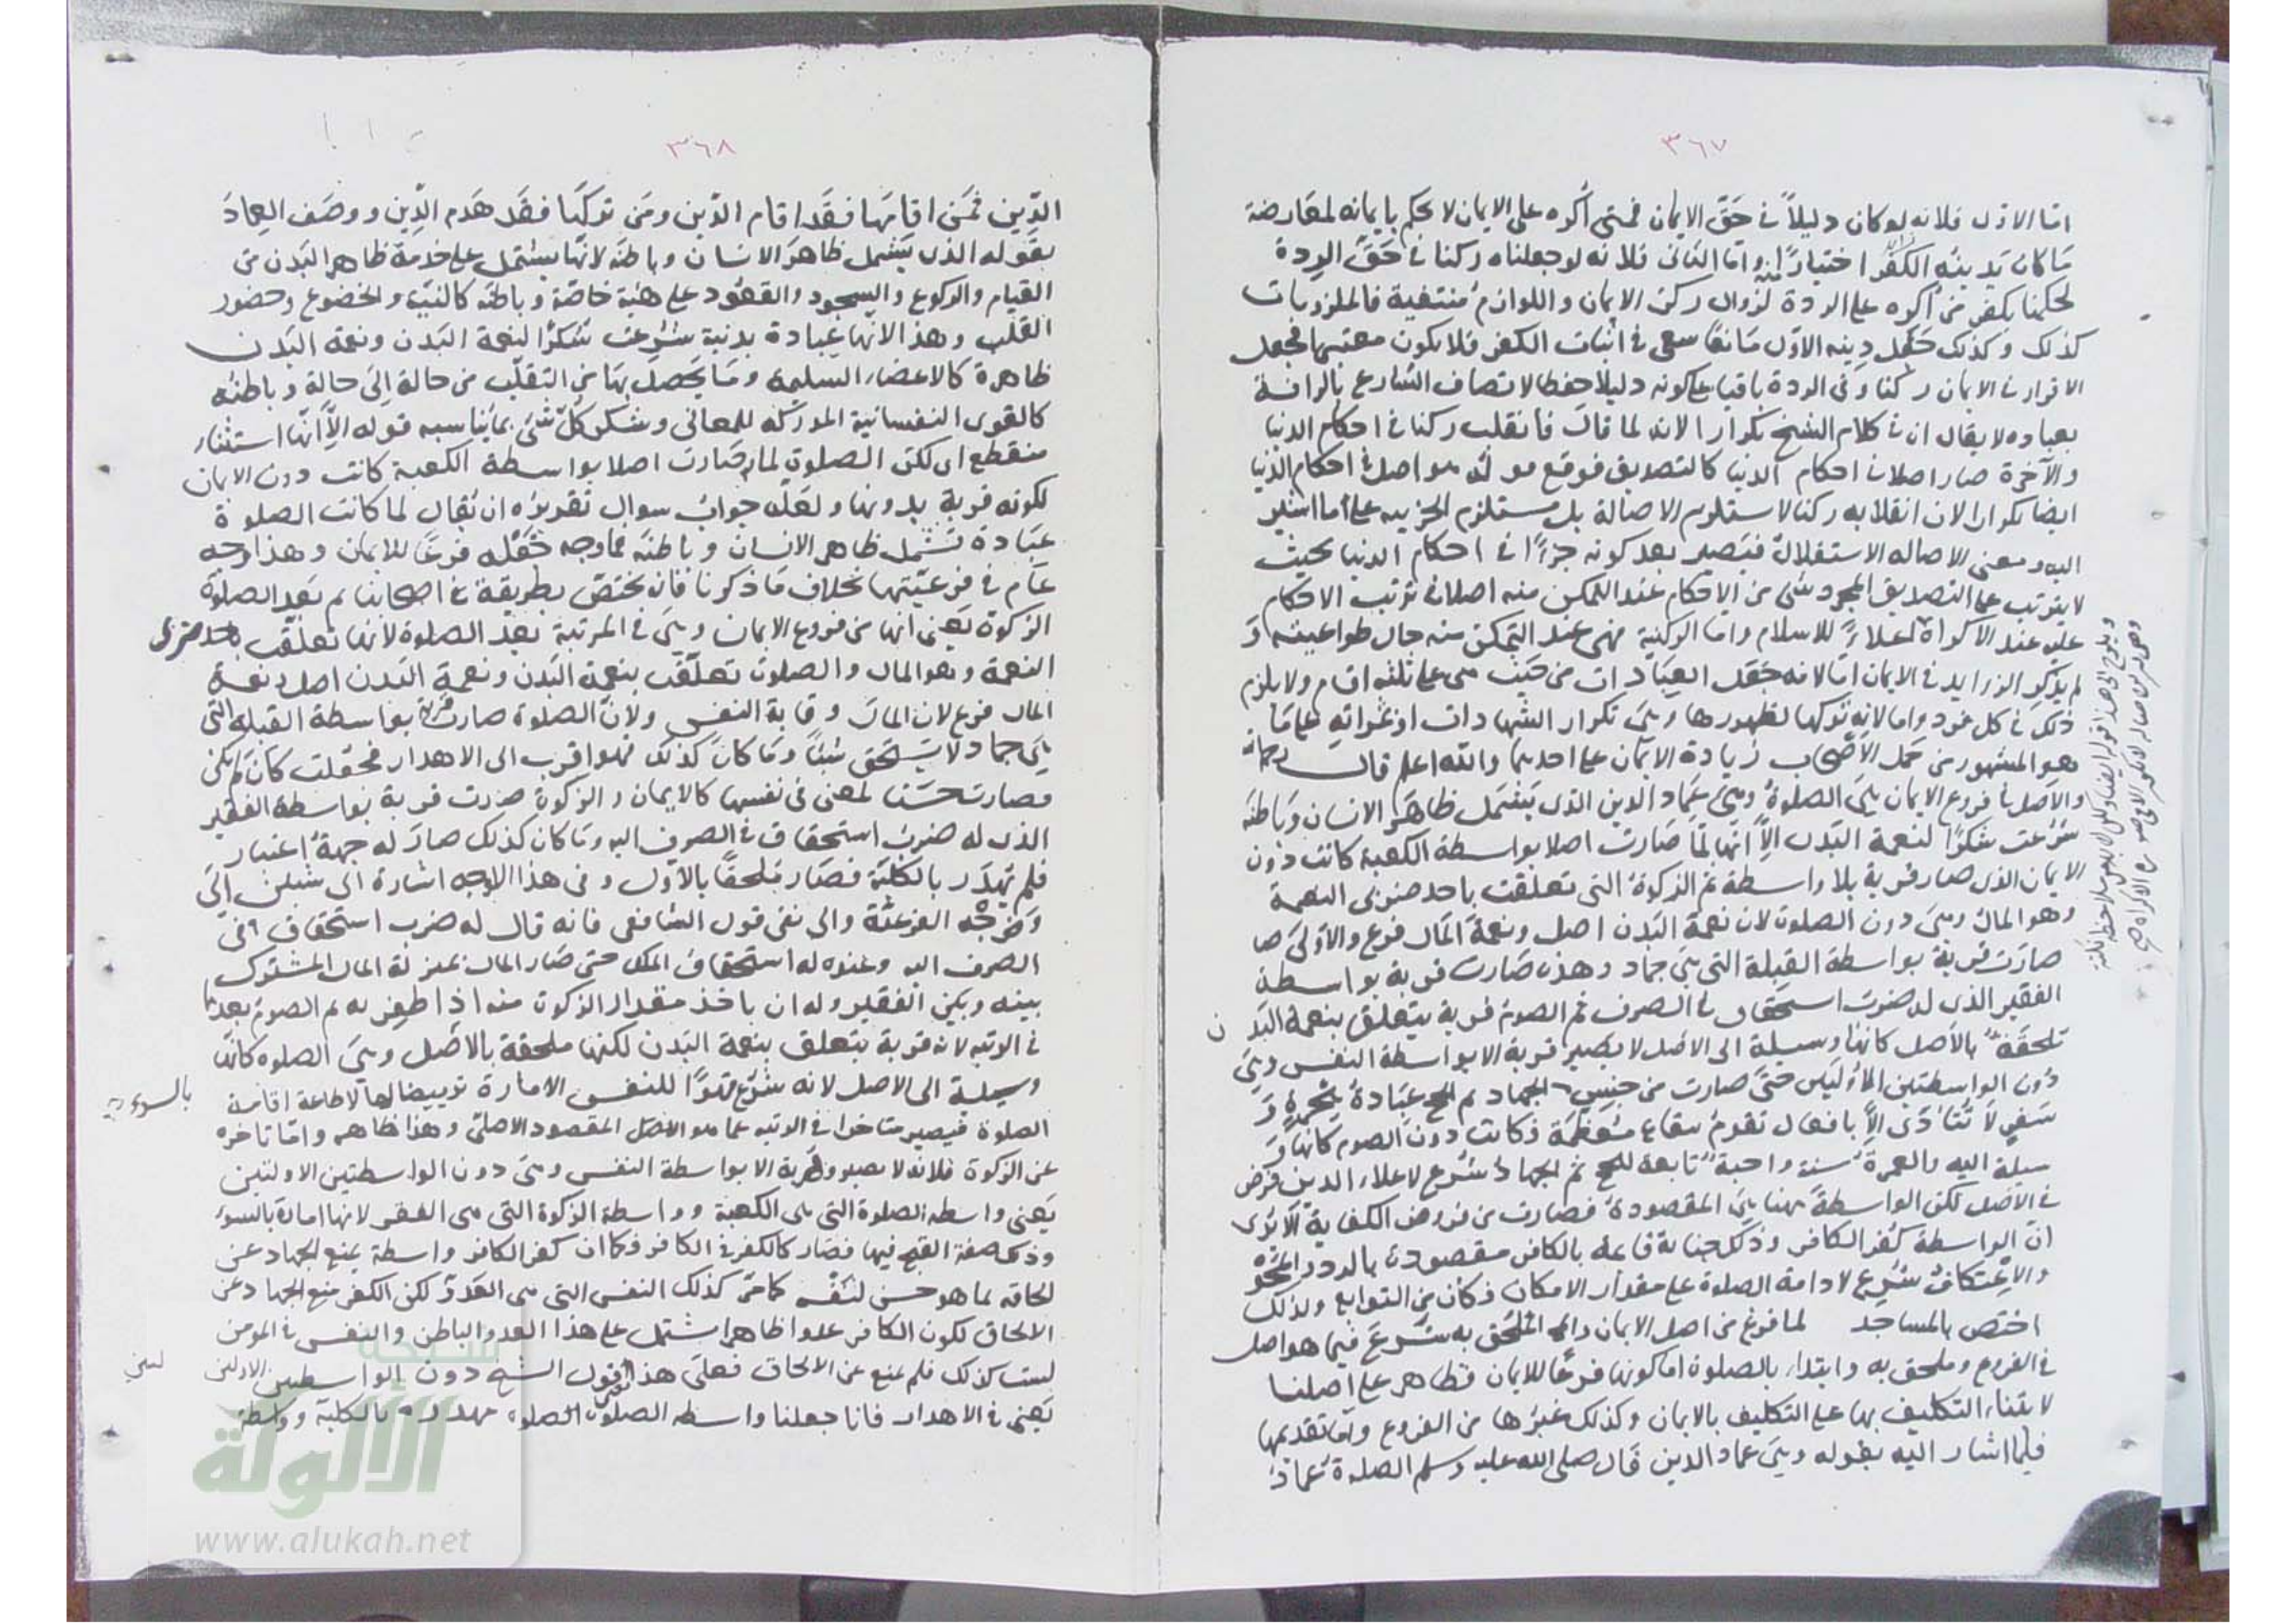 ٣٦٧
اما الاول فلانه لو كان دليلاً في حق الايمان فمتى أكره على الايمان لا يحكم بايمانه لمعارضة
ما كان يدينه الكفر اختياراً منه واما الثاني فلانه لو جعلناه ركنا في حق الردة
لحكمنا بكفر من أكره على الردة لزوال ركن الايمان واللوازم منتفية فالملزومات
كذلك وكذلك جعل دينه الاول مانعا سعى في اثبات الكفر فلا يكون معتبرا فجعل
الاقرار في الايمان ركنا وفي الردة باقيا على كونه دليلا حفظا لاتصاف الشارع بالرافة
بعباده لا يقال ان في كلام الشيخ تكرارا لانه لما قال فانقلب ركنا في احكام الدنيا
والآخرة صار اصلا في احكام الدنيا كالتصديق فوقع قوله هو اصل في احكام الدنيا
ايضا تكرارا لان انقلابه ركنا لا يستلزم الاصالة بل يستلزم الجزئيه على ما اشير
اليه ومعنى الاصاله الاستقلال فيصير بعد كونه جزءًا في احكام الدنيا بحيث
لا يترتب على التصديق المجرد شئ من الاحكام عند التمكن منه اصلا في ترتب الاحكام
عليه عند الاكراه اعلاءً للاسلام واما الركنية فهي عند التمكن منه حال طواعيته و
لم يذكر الزوايد في الايمان اما لانه جعل العبادات من حيث هي على ثلثه اقسام ولا يلزم
ذلك في كل فرد واما لانه تركها لظهورها وهي تكرار الشهادات او ثمراته على ما
هو المشهور من حمل الاصحاب زيادة الايمان على احديهما والله اعلم قال رحمه الله
والاصل في فروع الايمان هي الصلوة وهي عماد الدين الذي يشمل ظاهر الانسان وباطنه
شرعت شكرًا لنعمة البدن الا انها لما صارت اصلا بواسطة الكعبة كانت دون
الايمان الذي صار قربة بلا واسطة ثم الزكوة التي تعلقت باحد ضربي النعمة
وهو المال وهي دون الصلوة لان نعمة البدن اصل ونعمة المال فرع والاولى صا
صارت قربة بواسطة القبلة التي هي جماد وهذه صارت قربة بواسطة
الفقير الذي له ضرب استحقاق في الصرف ثم الصوم قربة يتعلق بنعمة البدن
ملحقة بالاصل كانها وسيلة الى الاصل لا يصير قربة الا بواسطة النفس وهي
دون الواسطتين الاوليين حتى صارت من جنس الجهاد ثم الحج عبادة هجرة و
سفر لا تتأدى الا بافعال تقوم ببقاع معظمة فكانت دون الصوم كانها و
سيلة اليه والعمرة سنة واجبة تابعة للحج ثم الجهاد شرع لاعلاء الدين فرض
في الاصل لكن الواسطة ههنا هي المقصودة فصارت من فروض الكفاية الا ترى
ان الواسطة كفر الكافر وذلك جناية قائمة بالكافر مقصودة بالرد والمحو
والاعتكاف شرع لادامة الصلوة على مقدار الامكان فكان من التوابع ولذلك
اختص بالمساجد لما فرغ من اصل الايمان والملحق به شرع فيما هو اصل
في الفروع وملحق به وابتداء بالصلوة اما كونها فرعًا للايمان فظاهر على اصلنا
لابتناء التكليف بها على التكليف بالايمان وكذلك غيرها من الفروع واما تقديمها
فلما اشار اليه بقوله وهي عماد الدين قال صلى الله عليه وسلم الصلوة عماد
٣٦٨
الدين فمن اقامها فقد اقام الدين ومن تركها فقد هدم الدين ووصف العماد
بقوله الذي يشمل ظاهر الانسان وباطنه لانها يشتمل على خدمة ظاهر البدن من
القيام والركوع والسجود والقعود على هئية خاصة وباطنه كالنية والخضوع وحضور
القلب وهذا لانها عبادة بدنية شرعت شكرًا لنعمة البدن ونعمة البدن
ظاهرة كالاعضاء السليمة وما يحصل بها من التقلب من حالة الى حالة وباطنه
كالقوى النفسانية المدركه للمعاني وشكر كل شئ بما يناسبه قوله الا انها استثناء
منقطع اي لكن الصلوة لما صارت اصلا بواسطة الكعبة كانت دون الايمان
لكونه قربة بدونها ولعله جواب سوال تقريره ان يقال لما كانت الصلوة
عبادة تشمل ظاهر الانسان وباطنه فما وجه جعله فرعًا للايمان وهذا وجه
عام في فرعيتها بخلاف ما ذكرنا فانه يختص بطريقة في اصحابنا ثم بعد الصلوة
الزكوة يعني انها من فروع الايمان وهي في المرتبة بعد الصلوة لانها تعلقت باحد ضربى
النعمة وهو المال والصلوة تعلقت بنعمة البدن ونعمة البدن اصل ونعمة
المال فرع لان المال وقاية النفس ولان الصلوة صارت قربة بواسطة القبلة التي
هي جماد لا يستحق شيئًا وما كان كذلك فهو اقرب الى الاهدار فجعلت كان لم يكن
فصارت حسنا لمعنى في نفسها كالايمان والزكوة صارت قربة بواسطة الفقير
الذي له ضرب استحقاق في الصرف اليه وما كان كذلك صار له جهة اعتبار
فلم تهدر بالكلية فصار ملحقا بالاول وفي هذا الوجه اشارة الى شيئين الى
وجه الفرعية والى نفى قول الشافعي فانه قال له ضرب استحقاق في
الصرف اليه وعنده له استحقاق الملك حتى صار المال بمنزلة المال المشترك
بينه وبين الفقير وله ان ياخذ مقدار الزكوة منه اذا ظفر به ثم الصوم بعدها
في الرتبه لانه قربة يتعلق بنعمة البدن لكنها ملحقة بالاصل وهي الصلوه كانها
وسيلة الى الاصل لانه شرع قهرًا للنفس الامارة ترييضا لها لاطاعة اقامة
بالسوء
الصلوة فيصير متاخرا في الرتبه عما هو الاصل المقصود الاصلي وهذا ظاهر واما تاخره
عن الزكوة فلانه لا يصير قربة الا بواسطة النفس وهي دون الواسطتين الاولتين
يعني واسطه الصلوة التي هي الكعبة وواسطة الزكوة التي هي الفقر لانها امارة بالسوء
وذلك صفة القبح فيها فصار كالكفر في الكافر فكما ان كفر الكافر واسطة يمنع الجهاد عن
الحاقه بما هو حسن لنفسه كما مر كذلك النفس التي هي العدو لكن الكفر منع الجهاد عن
الالحاق لكون الكافر عدوا ظاهرا شتمل على هذا العدو الباطن والنفس في المومن
ليست كذلك فلم يمنع عن الالحاق فعلى هذا قول الشيخ دون الواسطتين الاولتين
يعني في الاهدار فانا جعلنا واسطه الصلوة مهدرة بالكلية وواسطة
شبكة
الألوكة
www.alukah.net